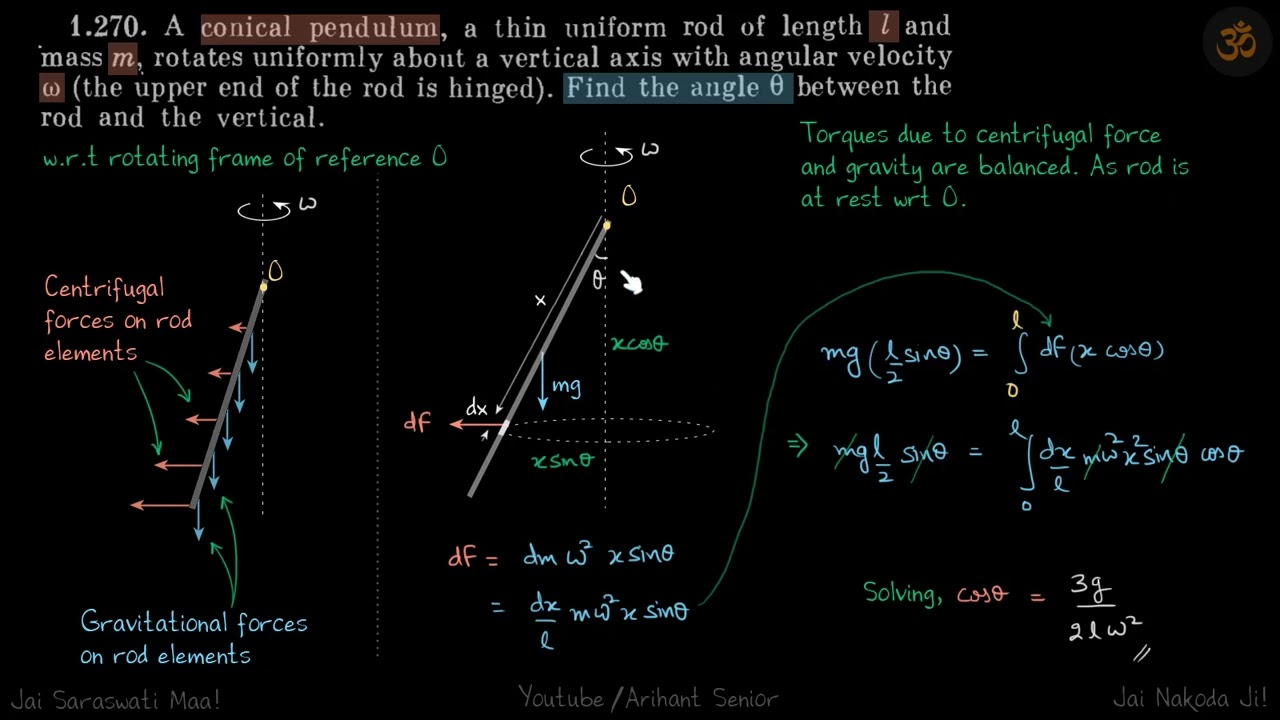 1.270. A conical pendulum, a thin uniform rod of length l and
mass m, rotates uniformly about a vertical axis with angular velocity
ω (the upper end of the rod is hinged). Find the angle θ between the
rod and the vertical.
ॐ
w.r.t rotating frame of reference O
ω
O
Centrifugal
forces on rod
elements
Gravitational forces
on rod elements
ω
O
θ
x
x cosθ
mg
dx
df
x sinθ
df = dm ω² x sinθ
= dx/l mω² x sinθ
Torques due to centrifugal force
and gravity are balanced. As rod is
at rest wrt O.
mg(l/2 sinθ) = ∫₀ˡ df(x cosθ)
⇒ mg l/2 sinθ = ∫₀ˡ dx/l mω²x² sinθ cosθ
Solving, cosθ = 3g/2lω²
Jai Saraswati Maa!
Youtube/Arihant Senior
Jai Nakoda Ji!